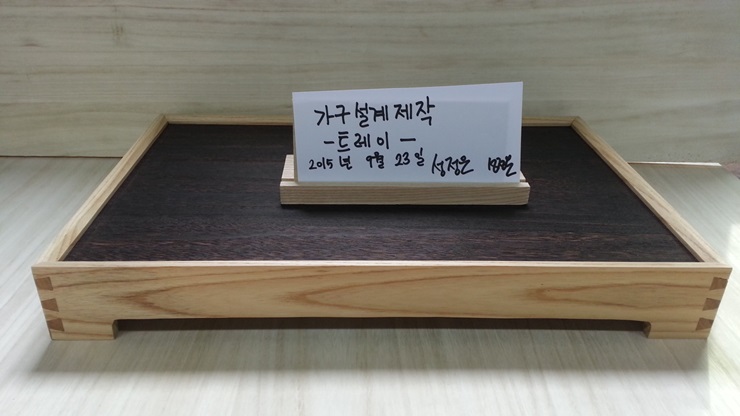 가구설계제작
-트레이-
2015년 9월 23일 성정은